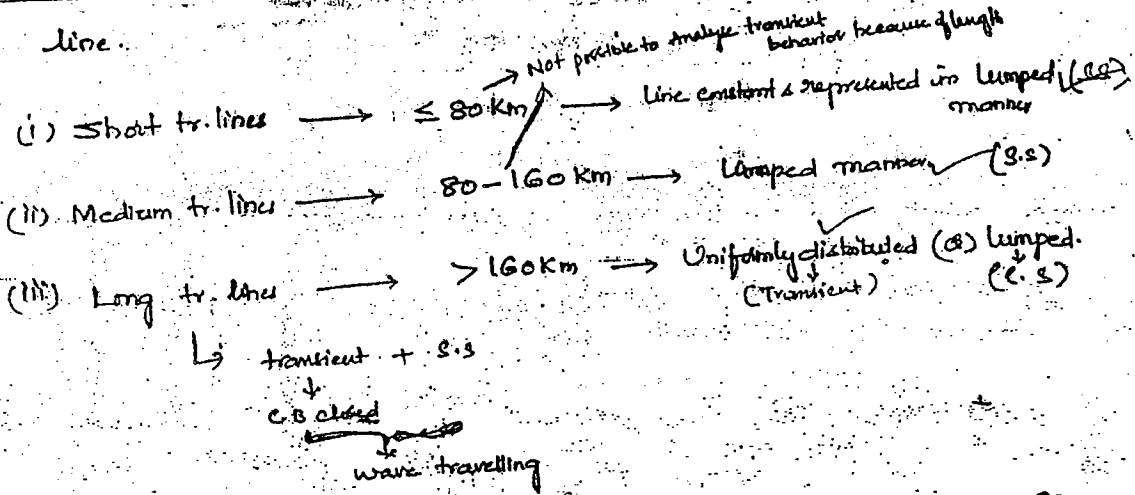 line.
→ Not possible to Analyse transient
behavior because of length
(i) Short tr. lines → ≤ 80 Km → Line constants represented in Lumped (S.S)
manner
(ii) Medium tr. lines → 80 - 160 Km → Lumped manner (S.S)
(iii) Long tr. lines → > 160 Km → Uniformly distributed (or) lumped.
(Transient) (S.S)
↳ transient + S.S
↓
C.B closed
↓
wave travelling